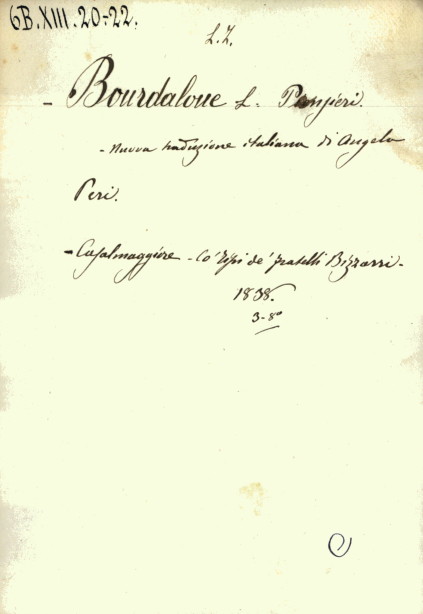 6B.XIII.20-22.
L.Z.
- Bourdaloue L. Pensieri.
- Nuova traduzione italiana di Angelo
Peri.
- Casalmaggiore - Co' Tipi de' fratelli Bizzarri -
1838.
3-8°